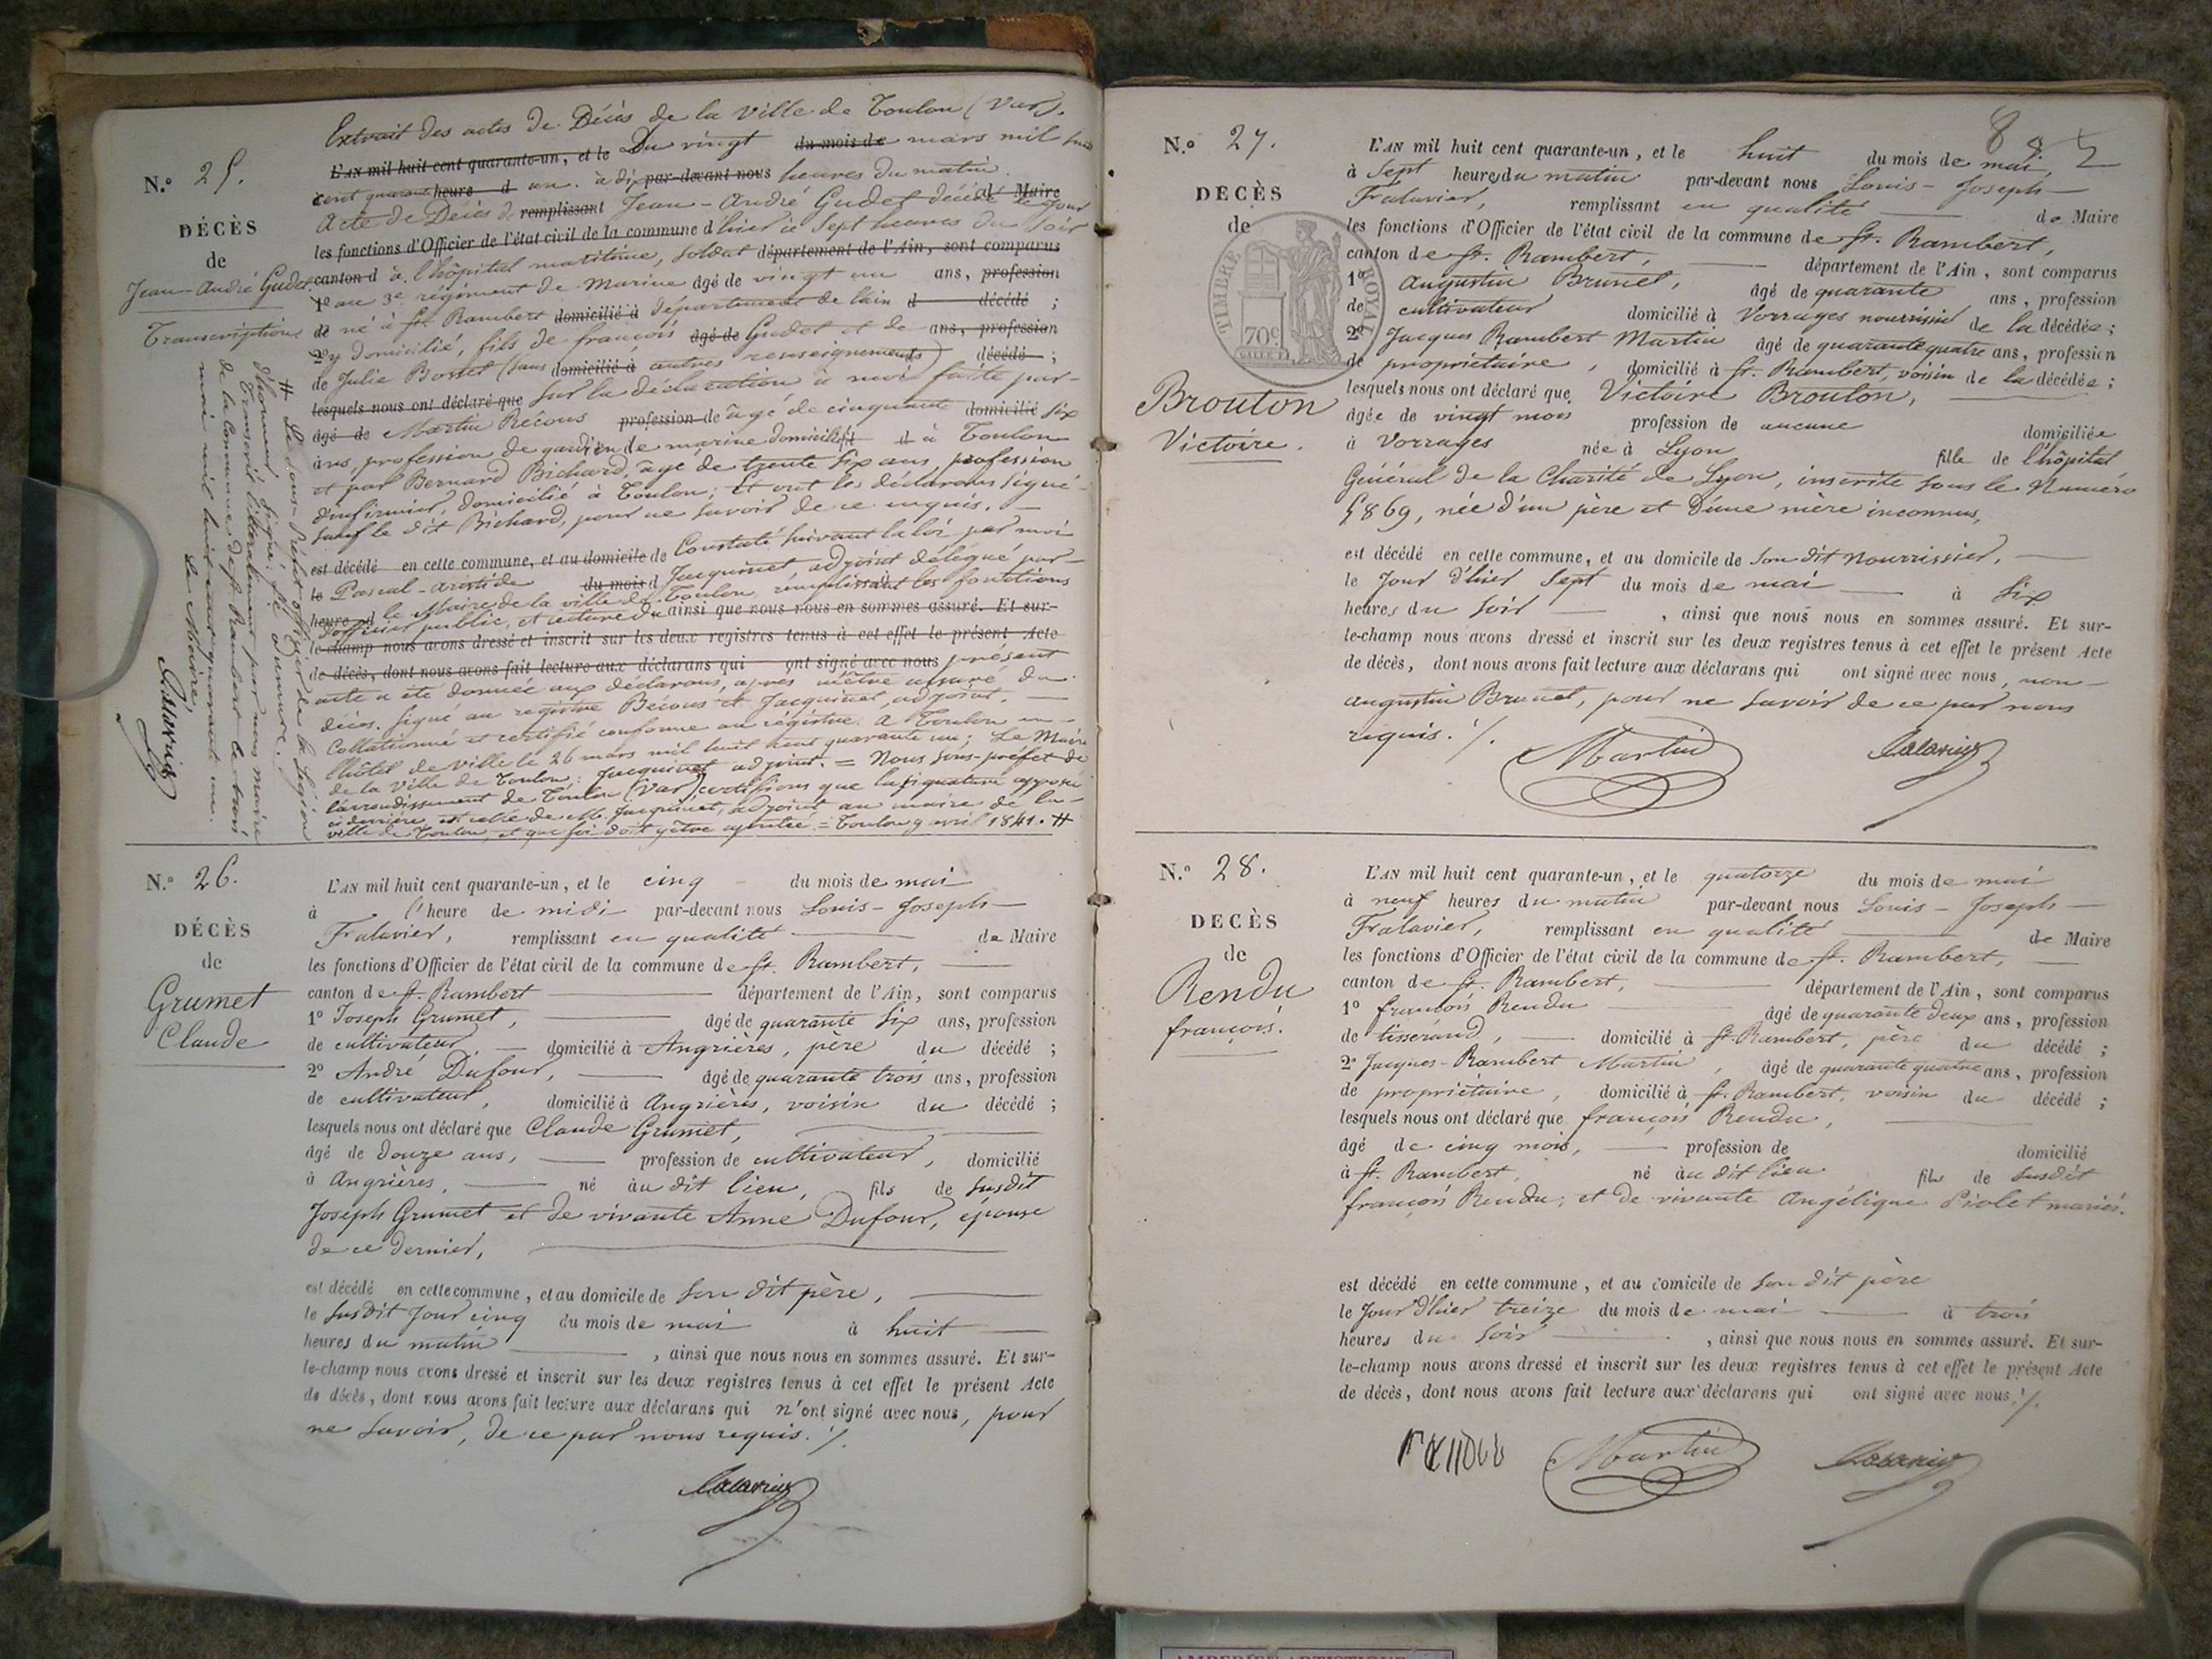 Extrait des actes de Décès de la ville de Toulon (Var).
N.º 25.
L'AN mil huit cent quarante-un, et le Du vingt du mois de mars mil huit
cent quarante heure d un. à dix par-devant nous heures du matin.
Acte de Décès de remplissant Jean-André Gudet décédé de Maire le jour
DÉCÈS
de
Jean-André Gudet
Transcription
les fonctions d'Officier de l'état civil de la commune d'hier à Sept heures du soir
canton d à l'hôpital maritime, soldat département de l'Ain, sont comparus
1º au 3e régiment de marine âgé de vingt un ans, profession
de né à St Rambert domicilié à Département de l'ain d décédé ;
2º y domicilié, fils de françois âgé de Gudet et de ans, profession
de Julie Bosset (sans domicilié à autres renseignements) décédé ;
lesquels nous ont déclaré que Sur la déclaration à moi faite par-
âgé de Martin Récous profession de âgé de cinquante domicilié six
ans, profession de gardien de marine domicilié d à Toulon
et par Bernard Bichard, âgé de trente six ans, profession
d'infirmier, domicilié à Toulon; Et ont les déclarans signé
sauf le dit Bichard, pour ne savoir de ce enquis. —
est décédé en cette commune, et au domicile de Constaté suivant la loi par moi
le Pascal-aristide du mois d Jacquinet adjoint délégué par-
heure d le Maire de la ville de Toulon, remplissant les fonctions
d'officier public, et lecture du ainsi que nous nous en sommes assuré. Et sur-
le-champ nous avons dressé et inscrit sur les deux registres tenus à cet effet le présent Acte
de décès, dont nous avons fait lecture aux déclarans qui ont signé avec nous présent
acte a été donnée aux déclarans, après m'être assuré du
décès. Signé au registre Récous et Jacquinet, adjoint. —
Collationné et certifié conforme au régistre. A Toulon en
l'hôtel de ville le 26 mars mil huit cent quarante un; Le Maire
de la ville de Toulon: Jacquinet adjoint. = Nous Sous-préfet de
l'arrondissement de Toulon (Var) certifions que la signature apposée
ci derrière, est celle de M. Jacquinet, adjoint au maire de la
ville de Toulon, et que foi doit y être ajoutée = Toulon 9 avril 1841. #
# Le Sous-Préfet officier de la Légion
d'honneur signé:
Transcrit littéralement par nous maire
de la Commune de St Rambert le trois
mai mil huit cent quarante un.
Le Maire,
N.º 26.
DÉCÈS
de
Grumet
Claude
L'AN mil huit cent quarante-un, et le cinq du mois de mai
à l'heure de midi par-devant nous Louis-Joseph-
Fralavier, remplissant en qualité de Maire
les fonctions d'Officier de l'état civil de la commune de St. Rambert,
canton de St. Rambert département de l'Ain, sont comparus
1º Joseph Grumet, âgé de quarante six ans, profession
de cultivateur, domicilié à Angrières, père du décédé ;
2º André Dufour, âgé de quarante trois ans, profession
de cultivateur, domicilié à Angrières, voisin du décédé ;
lesquels nous ont déclaré que Claude Grumet,
âgé de Douze ans, profession de cultivateur, domicilié
à Angrières, né au dit lieu, fils de susdit
Joseph Grumet et de vivante Anne Dufour, épouse
de ce dernier,
est décédé en cette commune, et au domicile de son dit père,
le susdit jour cinq du mois de mai à huit
heures du matin , ainsi que nous nous en sommes assuré. Et sur-
le-champ nous avons dressé et inscrit sur les deux registres tenus à cet effet le présent Acte
de décès, dont nous avons fait lecture aux déclarans qui n'ont signé avec nous, pour
ne savoir, de ce par nous requis. /.
8
N.º 27.
DECÈS
de
Brouton
Victoire.
TIMBRE ROYAL
70c.
L'AN mil huit cent quarante-un, et le huit du mois de mai,
à Sept heures du matin par-devant nous Louis-Joseph-
Fralavier, remplissant en qualité de Maire
les fonctions d'Officier de l'état civil de la commune de St. Rambert,
canton de St. Rambert, département de l'Ain, sont comparus
1º Augustin Brunet, âgé de quarante ans, profession
de cultivateur domicilié à Vorrages nourrissier de la décédée ;
2º Jacques Rambert Martin âgé de quarante quatre ans, profession
de propriétaire, domicilié à St. Rambert, voisin de la décédée ;
lesquels nous ont déclaré que Victoire Brouton,
âgée de vingt mois profession de aucune domiciliée
à Vorrages née à Lyon fille de l'hôpital
Général de la Charité de Lyon, inscrite sous le Numéro
5869, née d'un père et d'une mère inconnus,
est décédé en cette commune, et au domicile de son dit nourrissier,
le Jour d'hier Sept du mois de mai à Six
heures du soir , ainsi que nous nous en sommes assuré. Et sur-
le-champ nous avons dressé et inscrit sur les deux registres tenus à cet effet le présent Acte
de décès, dont nous avons fait lecture aux déclarans qui ont signé avec nous, non-
augustin Brunet, pour ne savoir de ce par nous
requis. /.
Martin
N.º 28.
DECÈS
de
Rendu
françois.
L'AN mil huit cent quarante-un, et le quatorze du mois de mai
à neuf heures du matin par-devant nous Louis-Joseph-
Fralavier, remplissant en qualité de Maire
les fonctions d'Officier de l'état civil de la commune de St. Rambert,
canton de St. Rambert, département de l'Ain, sont comparus
1º françois Rendu âgé de quarante deux ans, profession
de tisserand, domicilié à St. Rambert, père du décédé ;
2º Jacques-Rambert Martin, âgé de quarante quatre ans, profession
de propriétaire, domicilié à St. Rambert, voisin du décédé ;
lesquels nous ont déclaré que françois Rendu,
âgé de cinq mois, profession de domicilié
à St. Rambert, né au dit lieu fils de susdit
françois Rendu; et de vivante Angélique Piolet mariés.
est décédé en cette commune, et au domicile de son dit père
le Jour d'hier treize du mois de mai à trois
heures du soir , ainsi que nous nous en sommes assuré. Et sur-
le-champ nous avons dressé et inscrit sur les deux registres tenus à cet effet le présent Acte
de décès, dont nous avons fait lecture aux déclarans qui ont signé avec nous. /.
Martin